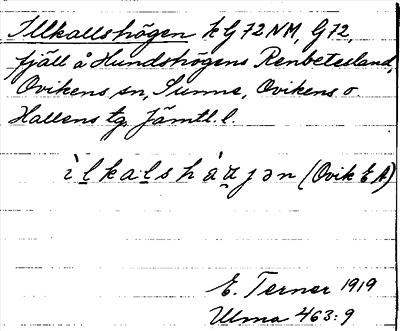 Illkallshögen k G 72 NM, G 72,
fjäll å Hundshögens Renbetesland,
Ovikens sn, Sunne, Ovikens o.
Hallens tg. Jämtl. l.
ìl̠kal̠shàa̠jən (Ovik E A)
E. Terner 1919
Ulma 463:9